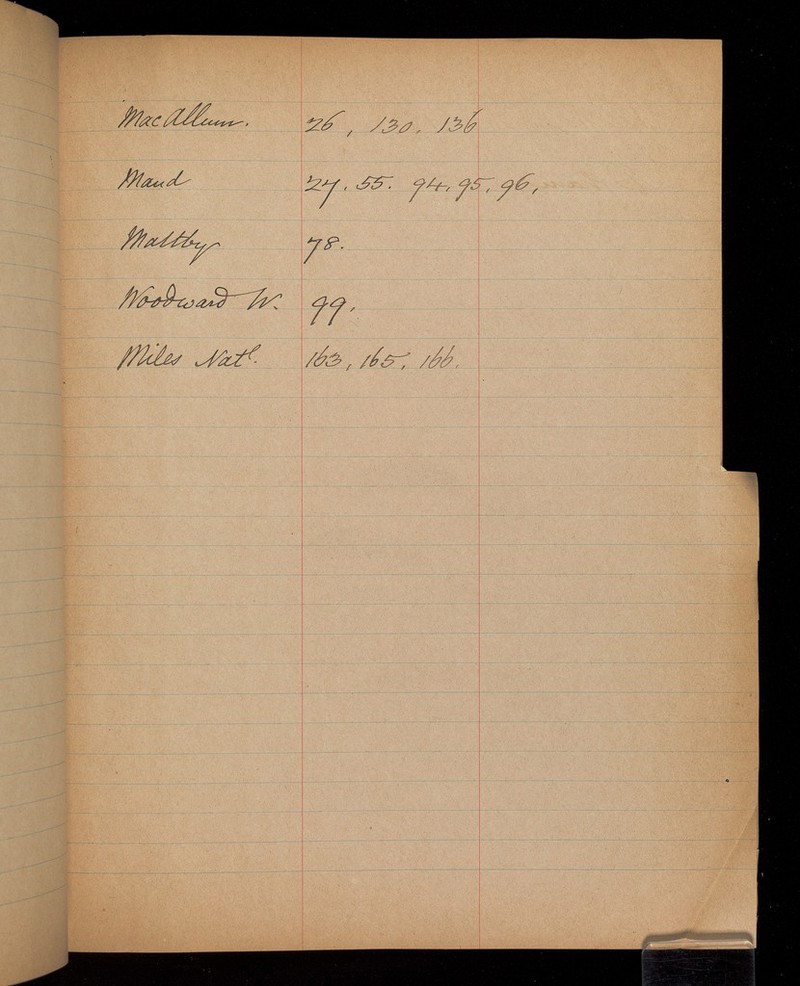 MacAllum. 26, 130. 136
Maud 27. 55. 94. 95. 96.
Maltby 78.
Woodward W. 99.
Miles Natl. 163, 165, 166.